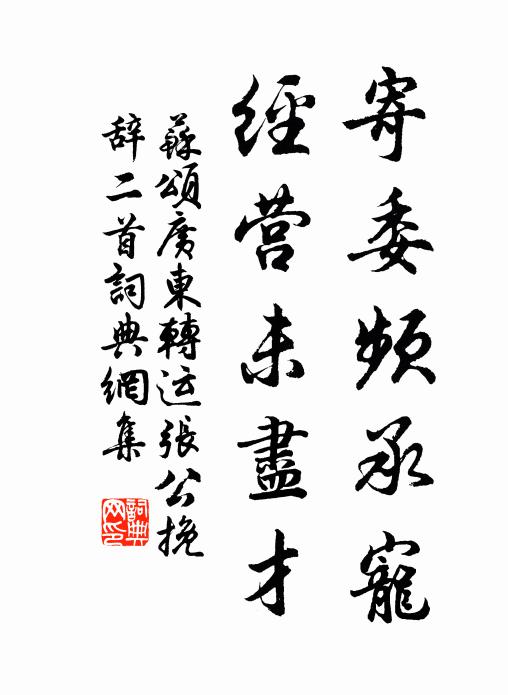 寄委頻承寵
經营未盡才
蘇頌廣東轉运張公挽
辞二首詞典網集
詞典网印